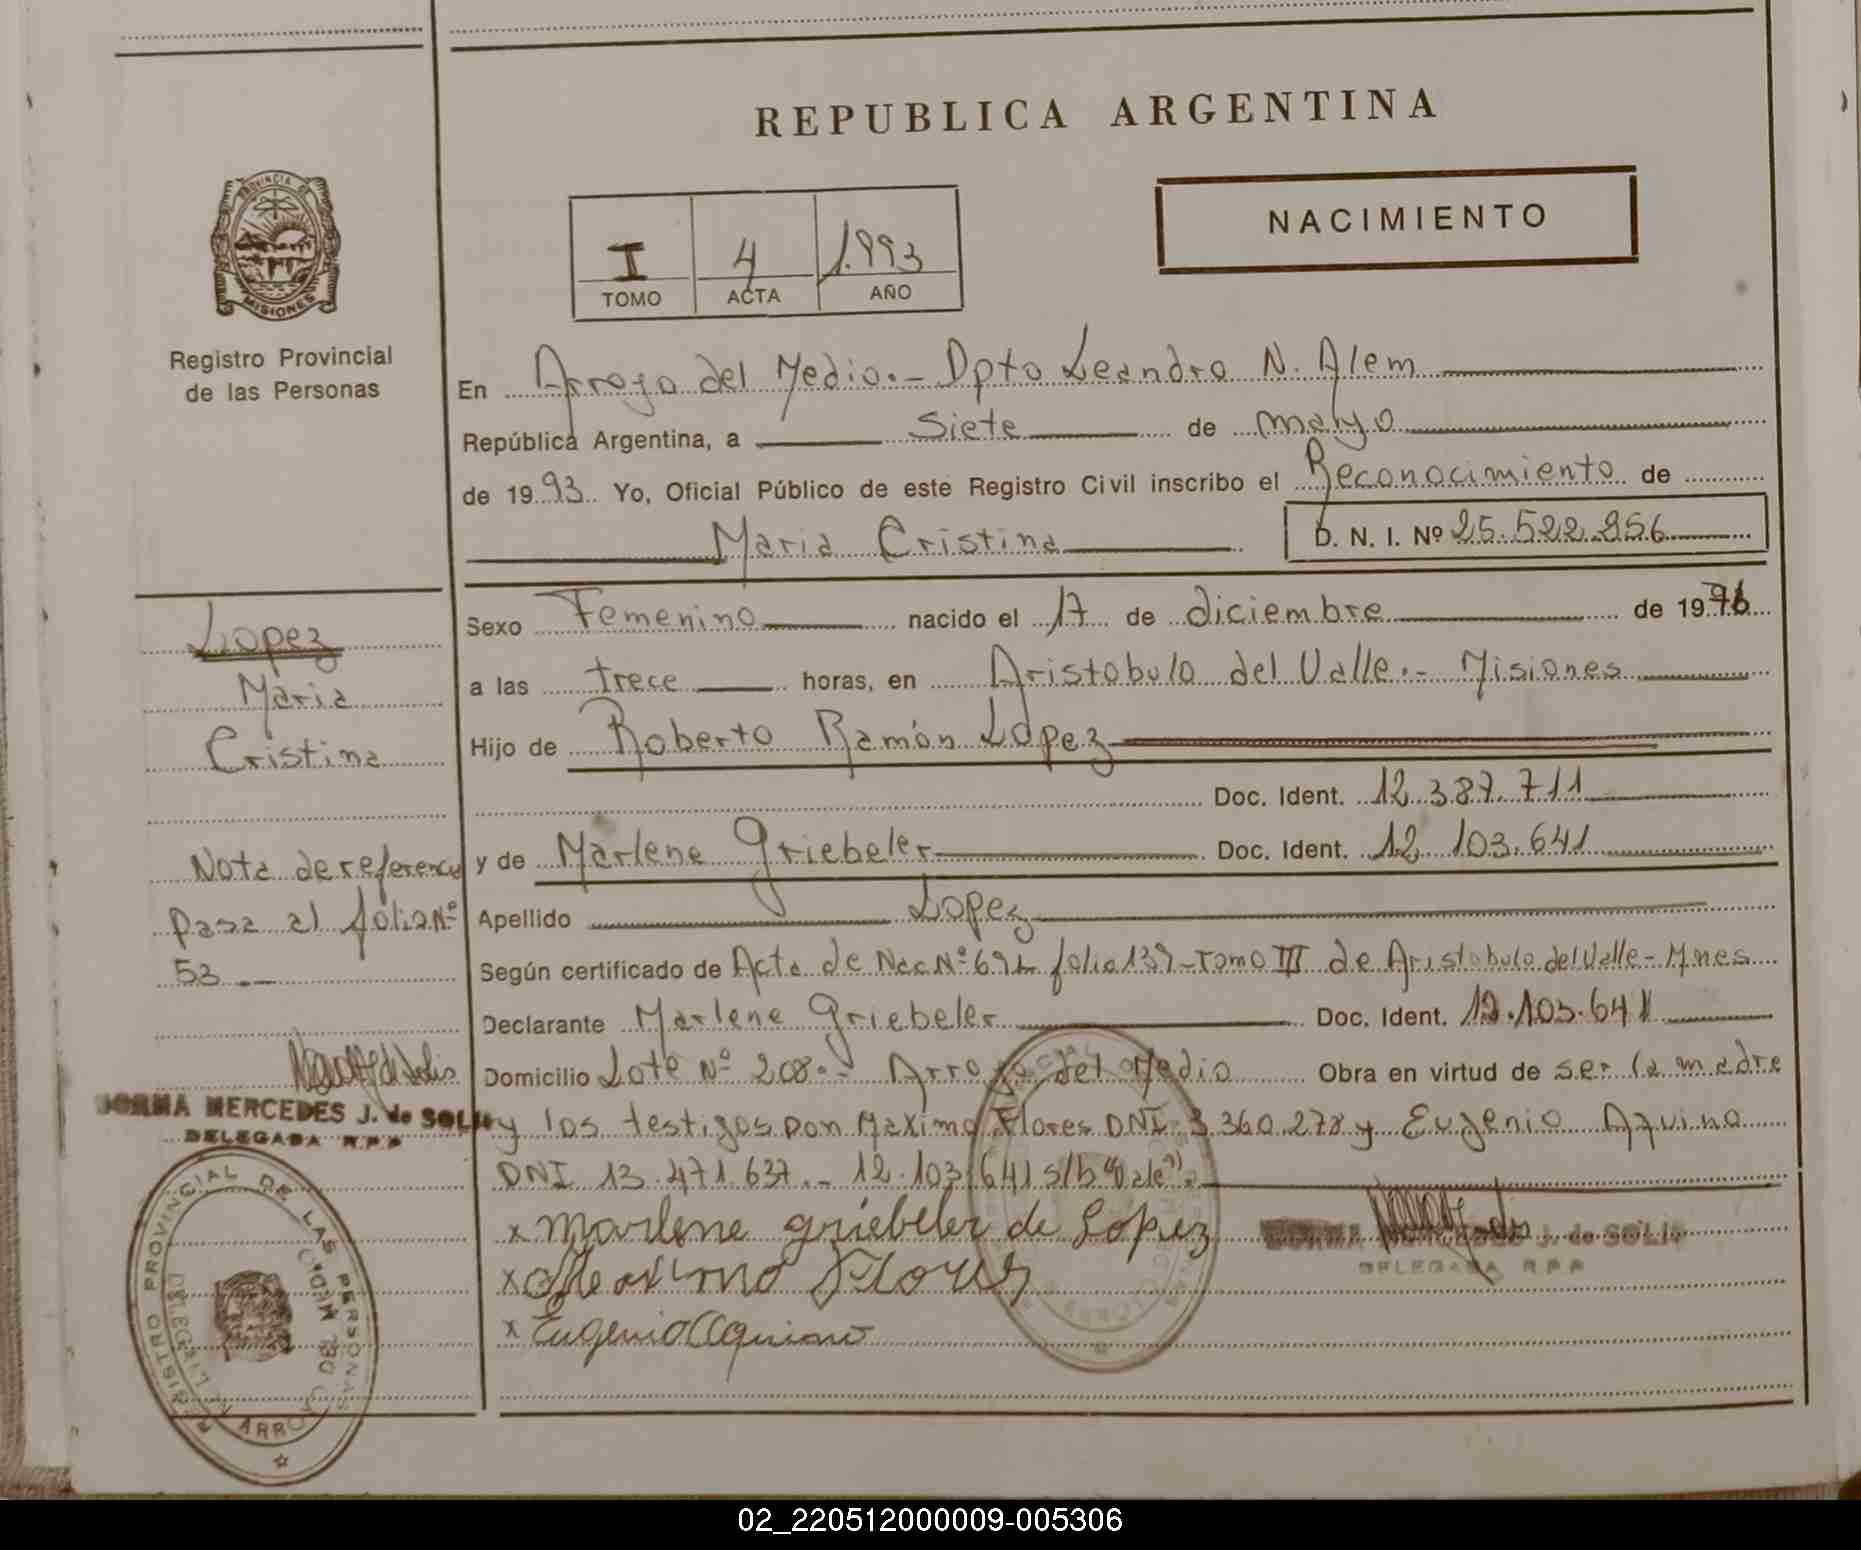 REPUBLICA ARGENTINA
NACIMIENTO
I 4 1.993
TOMO ACTA AÑO
PROVINCIA DE
MISIONES
Registro Provincial
de las Personas
En Arroyo del Medio.- Dpto Leandro N. Alem
República Argentina, a siete de mayo
de 1993 Yo, Oficial Público de este Registro Civil inscribo el Reconocimiento de
Maria Cristina D. N. I. Nº 25.522.256
Sexo Femenino nacido el 17 de diciembre de 1976
a las trece horas, en Aristobulo del Valle.- Misiones
Hijo de Roberto Ramón López
Doc. Ident. 12.387.711
y de Marlene Griebeler Doc. Ident. 12.103.641
Apellido Lopez
Según certificado de Acta de Nac Nº 692 folio 139 - Tomo III de Aristobulo del Valle - Mnes
Declarante Marlene Griebeler Doc. Ident. 12.103.641
Domicilio Lote Nº 208.- Arroyo del Medio Obra en virtud de ser la madre
y los testigos Don Maximo Flores DNI 3.360.278 y Eugenio Aquino
DNI 13.471.637.- 12.103.641 s/b "Vale".
x Marlene griebeler de Lopez
x Maximo Flores
x Eugenio Aquino
NORMA MERCEDES J. de SOLIS
DELEGADA R.P.P
Lopez
Maria
Cristina
Nota de referencia
pasa al folio Nº
53.-
NORMA MERCEDES J. de SOLIS
DELEGADA R.P.P
REGISTRO PROVINCIAL DE LAS PERSONAS
ARROYO DEL MEDIO
02_220512000009-005306